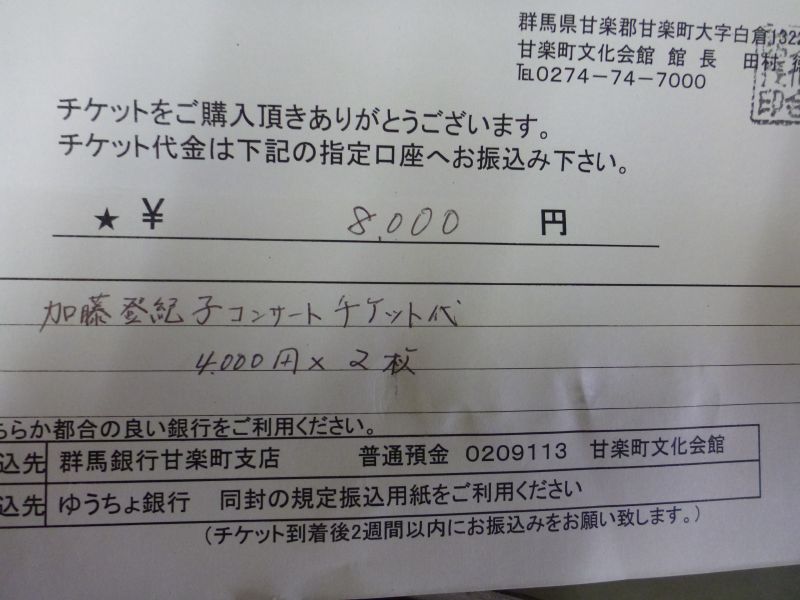 群馬県甘楽郡甘楽町大字白倉1322
甘楽町文化会館 館 長 田村
℡0274-74-7000
チケットをご購入頂きありがとうございます。
チケット代金は下記の指定口座へお振込み下さい。
★ ¥ 8,000 円
加藤登紀子コンサートチケット代
4,000円×2枚
ちらか都合の良い銀行をご利用ください。
込先 群馬銀行甘楽町支店 普通預金 0209113 甘楽町文化会館
込先 ゆうちょ銀行 同封の規定振込用紙をご利用ください
(チケット到着後2週間以内にお振込みをお願い致します。)